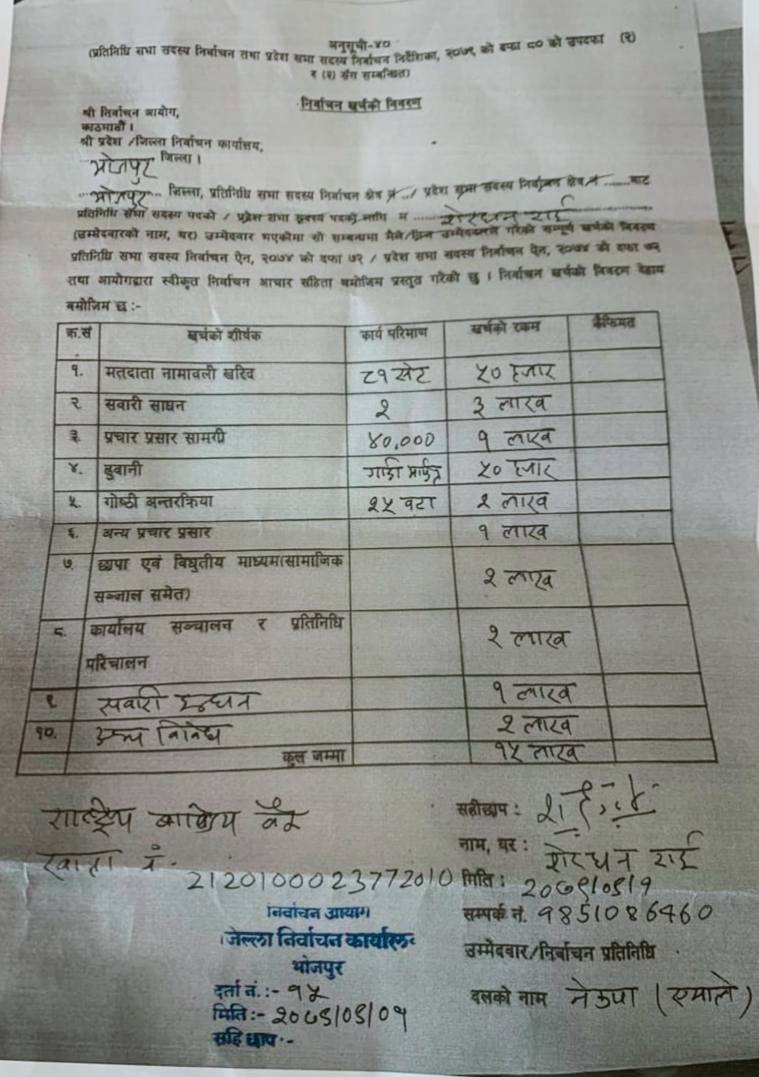 अनुसूची-४०
(प्रतिनिधि सभा सदस्य निर्वाचन तथा प्रदेश सभा सदस्य निर्वाचन निर्देशिका, २०७९ को दफा ८० को उपदफा (१)
र (२) सँग सम्बन्धित)
निर्वाचन खर्चको विवरण
श्री निर्वाचन आयोग,
काठमाडौं ।
श्री प्रदेश /जिल्ला निर्वाचन कार्यालय,
भोजपुर जिल्ला ।
भोजपुर जिल्ला, प्रतिनिधि सभा सदस्य निर्वाचन क्षेत्र नं .../ प्रदेश सभा सदस्य निर्वाचन क्षेत्र नं ...... बाट
प्रतिनिधि सभा सदस्य पदको / प्रदेश सभा सदस्य पदको लागि म ...... शेरधन राई
(उम्मेदवारको नाम, थर) उम्मेदवार भएकोमा सो सम्बन्धमा मैले गरेको सम्पूर्ण खर्चको विवरण
प्रतिनिधि सभा सदस्य निर्वाचन ऐन, २०७४ को दफा ७२ / प्रदेश सभा सदस्य निर्वाचन ऐन, २०७४ को दफा ७२
तथा आयोगद्वारा स्वीकृत निर्वाचन आचार संहिता बमोजिम प्रस्तुत गरेको छु । निर्वाचन खर्चको विवरण देहाय
बमोजिम छ :-
क्र.सं खर्चको शीर्षक कार्य परिमाण खर्चको रकम कैफियत
१. मतदाता नामावली खरिद ८१ सेट ५० हजार
२. सवारी साधन २ ३ लाख
३. प्रचार प्रसार सामग्री ४०,००० १ लाख
४. ढुवानी गाडी मार्फत ५० हजार
५. गोष्ठी अन्तरक्रिया २५ वटा २ लाख
६. अन्य प्रचार प्रसार १ लाख
७. छापा एवं विधुतीय माध्यम(सामाजिक
सञ्जाल समेत) २ लाख
८. कार्यालय सञ्चालन र प्रतिनिधि
परिचालन २ लाख
९ सवारी इन्धन १ लाख
१०. अन्य विविध २ लाख
कुल जम्मा १५ लाख
राष्ट्रिय बाणिज्य बैंक
खाता नं. 2120100023772010
सहीछाप :
नाम, थर : शेरधन राई
मिति : २०७९/०९/१
सम्पर्क नं. 9851086460
उम्मेदवार/निर्वाचन प्रतिनिधि
दलको नाम नेकपा (एमाले)
निर्वाचन आयोग
जिल्ला निर्वाचन कार्यालय
भोजपुर
दर्ता नं.:- १५
मिति :- २०७९/०९/०१
सहि छाप :-